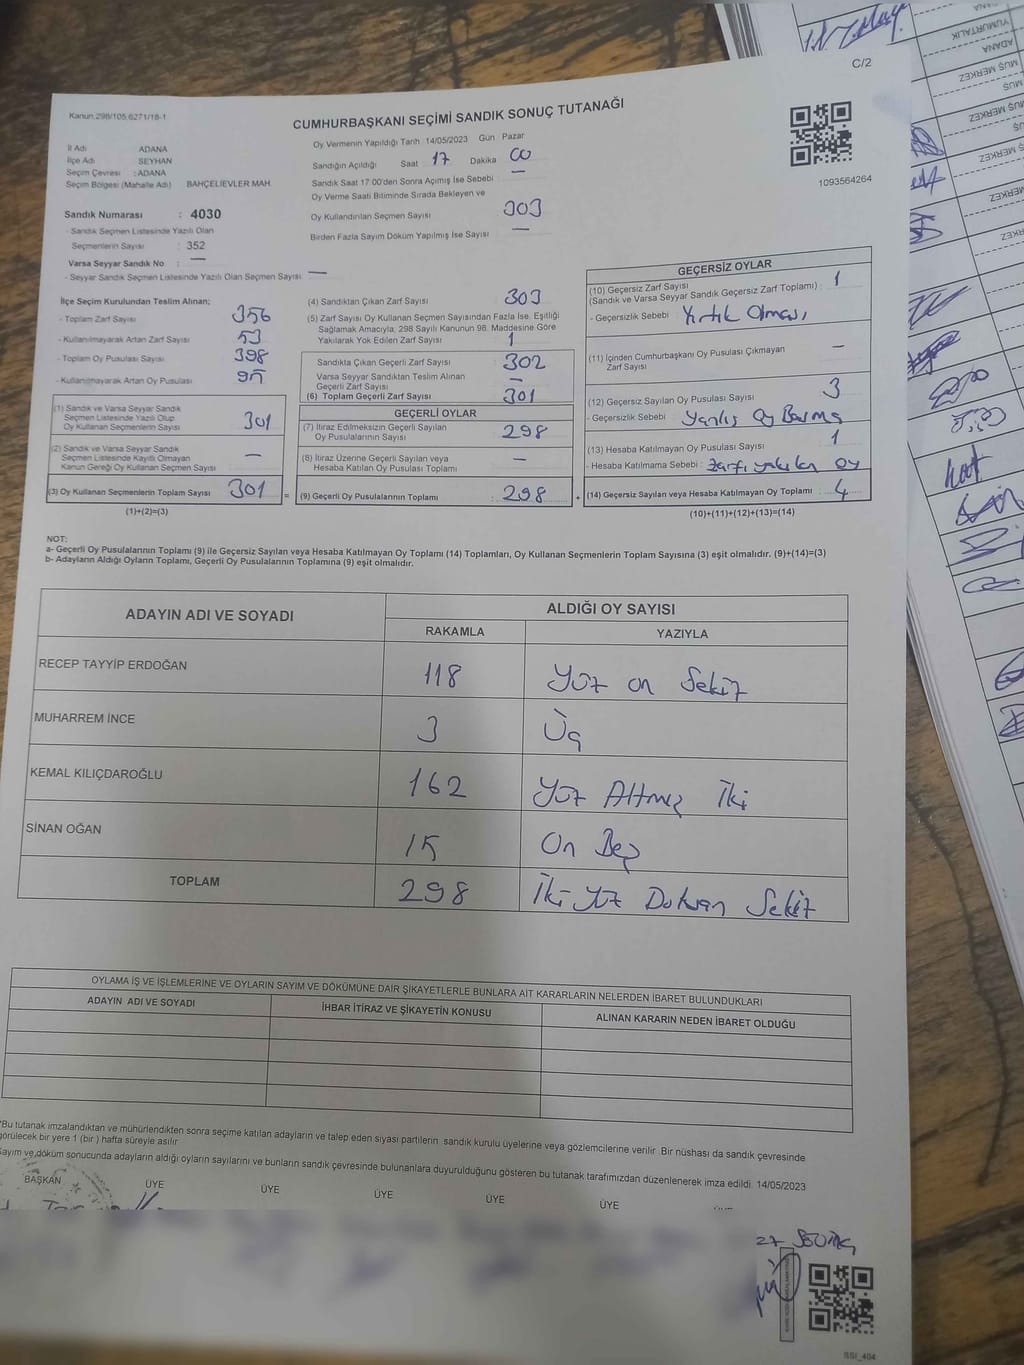 C/2
Kanun.298/105,6271/18-1
CUMHURBAŞKANI SEÇİMİ SANDIK SONUÇ TUTANAĞI
1093564264
İl Adı ADANA
İlçe Adı SEYHAN
Seçim Çevresi : ADANA
Seçim Bölgesi (Mahalle Adı) BAHÇELİEVLER MAH.
Oy Vermenin Yapıldığı Tarih 14/05/2023 Gün Pazar
Sandığın Açıldığı Saat 17 Dakika 00
Sandık Saat 17:00'den Sonra Açımış İse Sebebi —
Oy Verme Saati Bitiminde Sırada Bekleyen ve
Oy Kullandırılan Seçmen Sayısı 303
Birden Fazla Sayım Döküm Yapılmış İse Sayısı —
Sandık Numarası : 4030
- Sandık Seçmen Listesinde Yazılı Olan
Seçmenlerin Sayısı : 352
Varsa Seyyar Sandık No : —
- Seyyar Sandık Seçmen Listesinde Yazılı Olan Seçmen Sayısı : —
İlçe Seçim Kurulundan Teslim Alınan;
- Toplam Zarf Sayısı 356
- Kullanılmayarak Artan Zarf Sayısı 53
- Toplam Oy Pusulası Sayısı 398
- Kullanılmayarak Artan Oy Pusulası 95
(1) Sandık ve Varsa Seyyar Sandık
Seçmen Listesinde Yazılı Olup
Oy Kullanan Seçmenlerin Sayısı 301
(2) Sandık ve Varsa Seyyar Sandık
Seçmen Listesinde Kayıtlı Olmayan
Kanun Gereği Oy Kullanan Seçmen Sayısı —
(3) Oy Kullanan Seçmenlerin Toplam Sayısı 301
(1)+(2)=(3)
(4) Sandıktan Çıkan Zarf Sayısı 303
(5) Zarf Sayısı Oy Kullanan Seçmen Sayısından Fazla İse, Eşitliği
Sağlamak Amacıyla; 298 Sayılı Kanunun 98. Maddesine Göre
Yakılarak Yok Edilen Zarf Sayısı : 1
Sandıkta Çıkan Geçerli Zarf Sayısı 302
Varsa Seyyar Sandıktan Teslim Alınan
Geçerli Zarf Sayısı —
(6) Toplam Geçerli Zarf Sayısı 301
GEÇERLİ OYLAR
(7) İtiraz Edilmeksizin Geçerli Sayılan
Oy Pusulalarının Sayısı 298
(8) İtiraz Üzerine Geçerli Sayılan veya
Hesaba Katılan Oy Pusulası Toplamı —
= (9) Geçerli Oy Pusulalarının Toplamı 298 +
GEÇERSİZ OYLAR
(10) Geçersiz Zarf Sayısı
(Sandık ve Varsa Seyyar Sandık Geçersiz Zarf Toplamı) : 1
- Geçersizlik Sebebi : Yırtık Olması,
(11) İçinden Cumhurbaşkanı Oy Pusulası Çıkmayan
Zarf Sayısı —
(12) Geçersiz Sayılan Oy Pusulası Sayısı 3
- Geçersizlik Sebebi : Yanlış Oy Basma
(13) Hesaba Katılmayan Oy Pusulası Sayısı 1
- Hesaba Katılmama Sebebi : Zarfı yakılan oy
(14) Geçersiz Sayılan veya Hesaba Katılmayan Oy Toplamı : 4
(10)+(11)+(12)+(13)=(14)
NOT:
a- Geçerli Oy Pusulalarının Toplamı (9) ile Geçersiz Sayılan veya Hesaba Katılmayan Oy Toplamı (14) Toplamları, Oy Kullanan Seçmenlerin Toplam Sayısına (3) eşit olmalıdır. (9)+(14)=(3)
b- Adayların Aldığı Oyların Toplamı, Geçerli Oy Pusulalarının Toplamına (9) eşit olmalıdır.
ADAYIN ADI VE SOYADI ALDIĞI OY SAYISI
RAKAMLA YAZIYLA
RECEP TAYYİP ERDOĞAN 118 Yüz on Sekiz
MUHARREM İNCE 3 Üç
KEMAL KILIÇDAROĞLU 162 Yüz Altmış İki
SİNAN OĞAN 15 On Beş
TOPLAM 298 İki Yüz Doksan Sekiz
OYLAMA İŞ VE İŞLEMLERİNE VE OYLARIN SAYIM VE DÖKÜMÜNE DAİR ŞİKAYETLERLE BUNLARA AİT KARARLARIN NELERDEN İBARET BULUNDUKLARI
ADAYIN ADI VE SOYADI İHBAR İTİRAZ VE ŞİKAYETİN KONUSU ALINAN KARARIN NEDEN İBARET OLDUĞU
*Bu tutanak imzalandıktan ve mühürlendikten sonra seçime katılan adayların ve talep eden siyasi partilerin sandık kurulu üyelerine veya gözlemcilerine verilir. Bir nüshası da sandık çevresinde
görülecek bir yere 1 (bir) hafta süreyle asılır.
Sayım ve döküm sonucunda adayların aldığı oyların sayılarını ve bunların sandık çevresinde bulunanlara duyurulduğunu gösteren bu tutanak tarafımızdan düzenlenerek imza edildi. 14/05/2023
BAŞKAN ÜYE ÜYE ÜYE ÜYE ÜYE
YUMURTALIK
ADANA
MUŞ MERKEZ
MUŞ
MUŞ MERKEZ